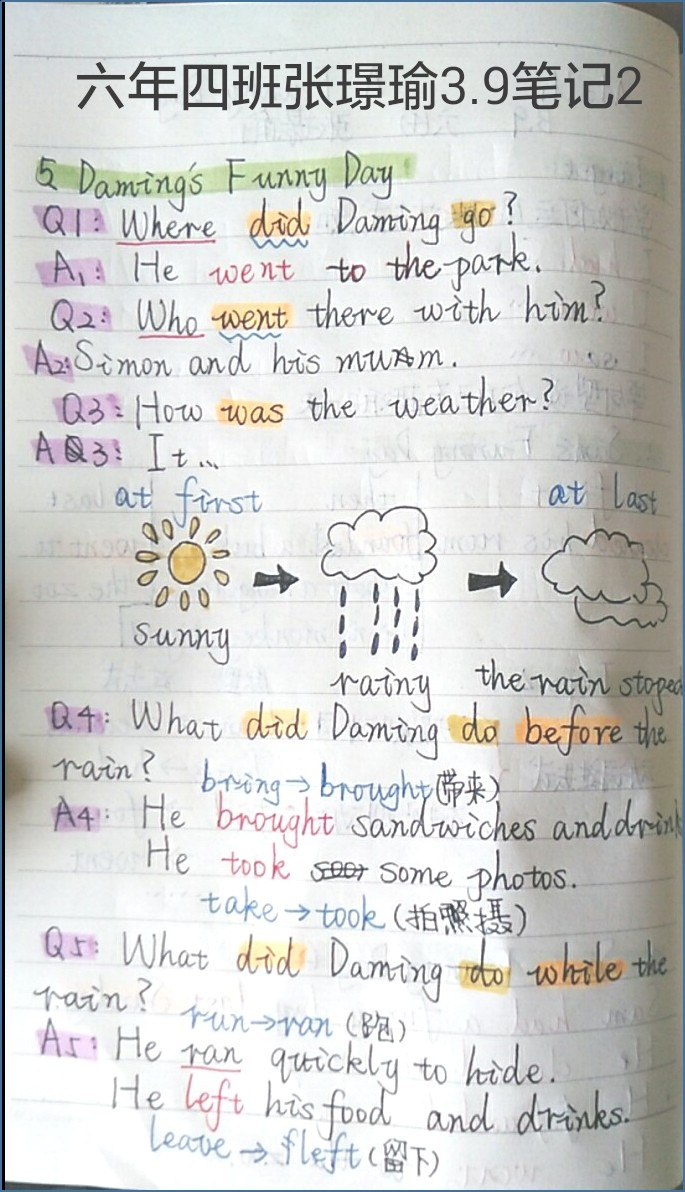 六年四班张璟瑜3.9笔记2
5 Daming's Funny Day
Q1: Where did Daming go?
A1: He went to the park.
Q2: Who went there with him?
A2: Simon and his mum.
Q3: How was the weather?
A3: It...
at first
at last
sunny
rainy
the rain stoped
Q4: What did Daming do before the
rain? bring→brought(带来)
A4: He brought sandwiches and drink
He took some photos.
take→took(拍照摄)
Q5: What did Daming do while the
rain? run→ran(跑)
A5: He ran quickly to hide.
He left his food and drinks.
leave→left(留下)